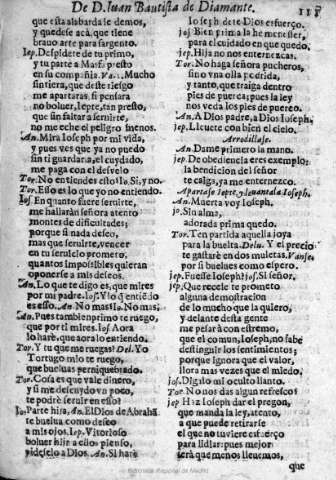 De D. Iuan Bautista de Diamante.
que esta alabarda le demos,
y quedese acà, que tiene
brauo arte para sargento.
Iep. Despidete de tu primo,
y tu parte a Masfa presto
en su compañia. Va. Mucho
sintiera, que deste riesgo
me apartaras, si pensara
no boluer, Iepte, tan presto,
que sin faltar a seruirte,
no me eche el peligro menos.
An. Mira Ioseph por mi vida,
y pues ves que ya no puedo
sin ti guardarla, el cuydado
me paga con el desvelo
Tor. No entiendes esto? Io. Si, y no.
Tor. Esso es lo que yo no entiendo.
Ios. En quanto fuere seruirte,
me hallaràn señora atento
montes de dificultades;
porque si nada deseo,
mas que seruirte, vencer
en tu seruicio prometo,
quantos imposibles quieran
oponerse a mis deseos.
An. Lo que te digo es, que mires
por mi padre. Ios. Y lo q̃ entiẽdo
es esso. An. No mas? Io. No mas.
An. Pues tambien primo te ruego,
que por ti mires. Ios. Aora
lo harè, que aora lo entiendo.
Tor. Y tu que me ruegas? Del. Yo
Tortugo mio te ruego,
que bueluas perniquebrado.
Tor. Cosa es que vale dinero,
y si me descuydo vn poco,
te podrè seruir en esso?
Io. Parte hija, An. El Dios de Abrahã
te buelua como deseo
a mis ojos. Iep. Vitorioso
boluer hija a ellos pienso,
pideselo a Dios. An. Si harè
Ioseph. dete Dios esfuerço.
Ios. Bien prima le he menester,
para el cuidado en que quedo.
Iep. Hija no nos enternezcas.
Tor. No haga señora pucheros,
sino vna olla podrida,
y tanto, que traiga dentro
pies de puerca; pues la ley
nos veda los pies de puerco.
An. A Dios padre, a Dios Ioseph.
Iep. Lleuete con bien el cielo.
Arrodillase.
An. Dame primero la mano.
Iep. De obediencia eres exemplo;
la bendicion del señor
te caiga, ya me enternezco.
Apartase Iepte, y leuantala Ioseph.
An. Muerta voy Ioseph.
Io. Sin alma,
adorada prima quedo.
Tor. Ten partida aquella joya
para la buelta. Delu. Y el precio
te gastarè en dos muletas, Vanse.
por si buelues como espero.
Iep. Fuesse Ioseph? Ios. Si señor.
Iep. Que recele te prometo
alguna demostracion
de lo mucho que la quiero,
y delante desta gente
me pesarà con estremo,
que el comun, Ioseph, no sabe
destinguir los sentimientos;
porque ignora que el valor,
llora mas vezes que el miedo.
Ios. Digalo mi oculto llanto.
Tor. No nos das algun refresco?
Iep. Haz Ioseph dar el pregon,
que manda la ley, atento,
a que puede retirarse
el que no tuviere esfuerço
para lidiar: pues mejor
serà que menos lleuemos,
que
Biblioteca Regional de Madrid